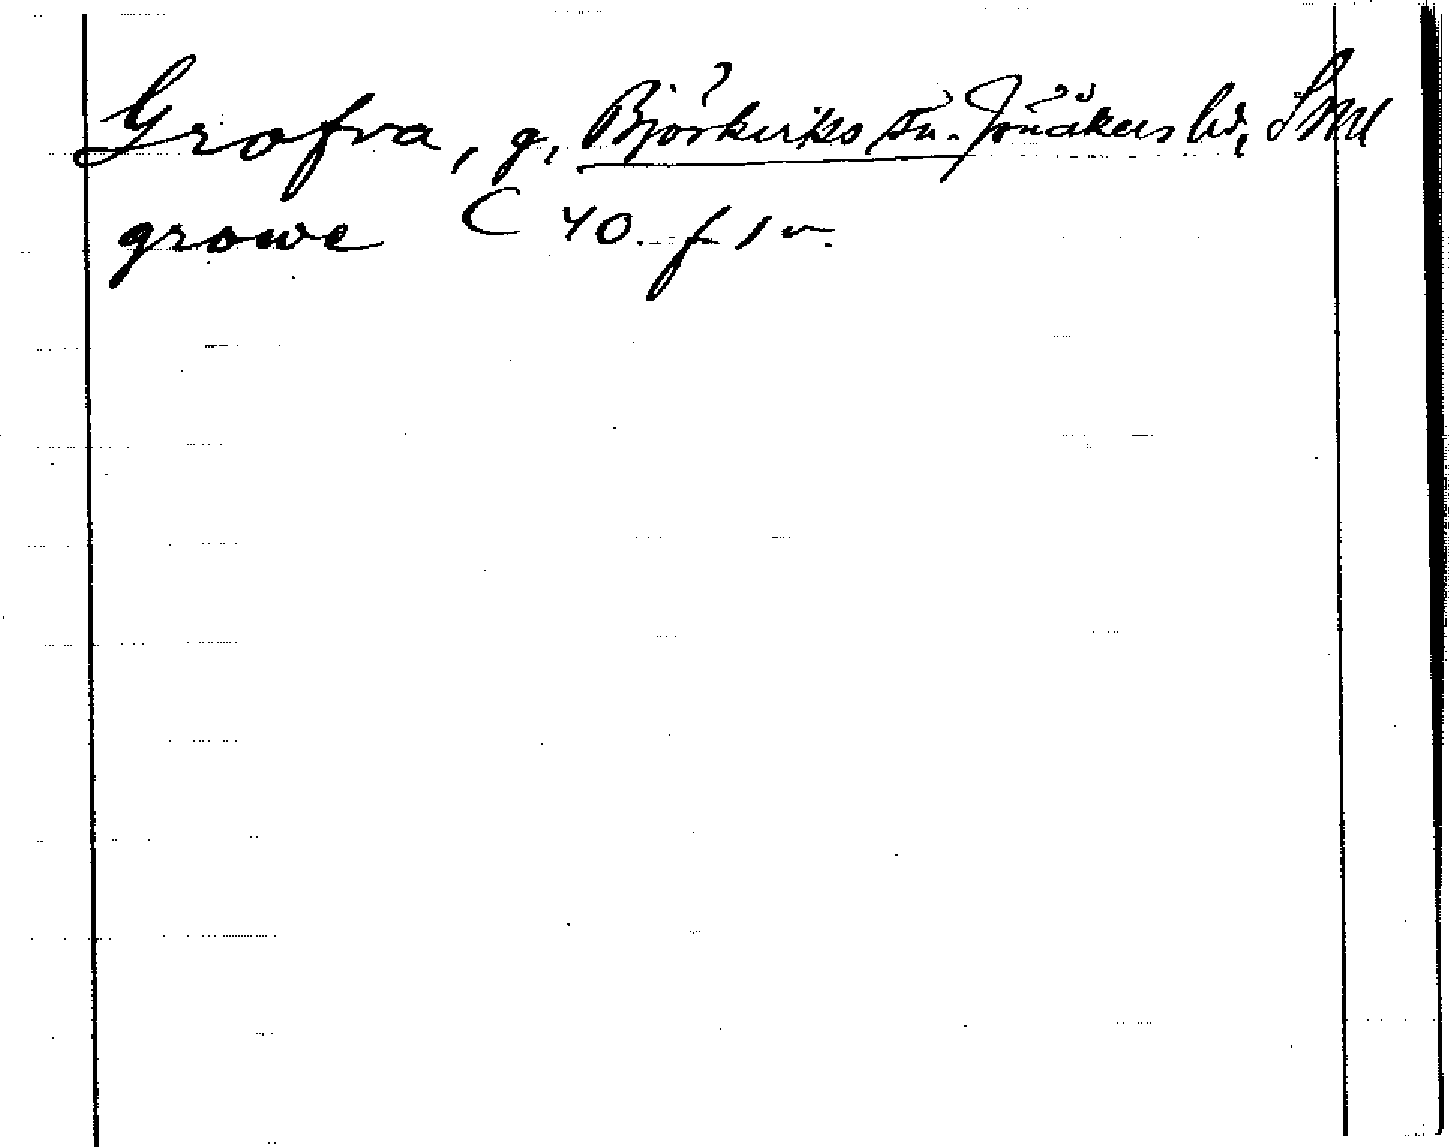 Grofva, g, Björkviks sn. Jönåkers hd, Sml
growe C 40. f 1 v.